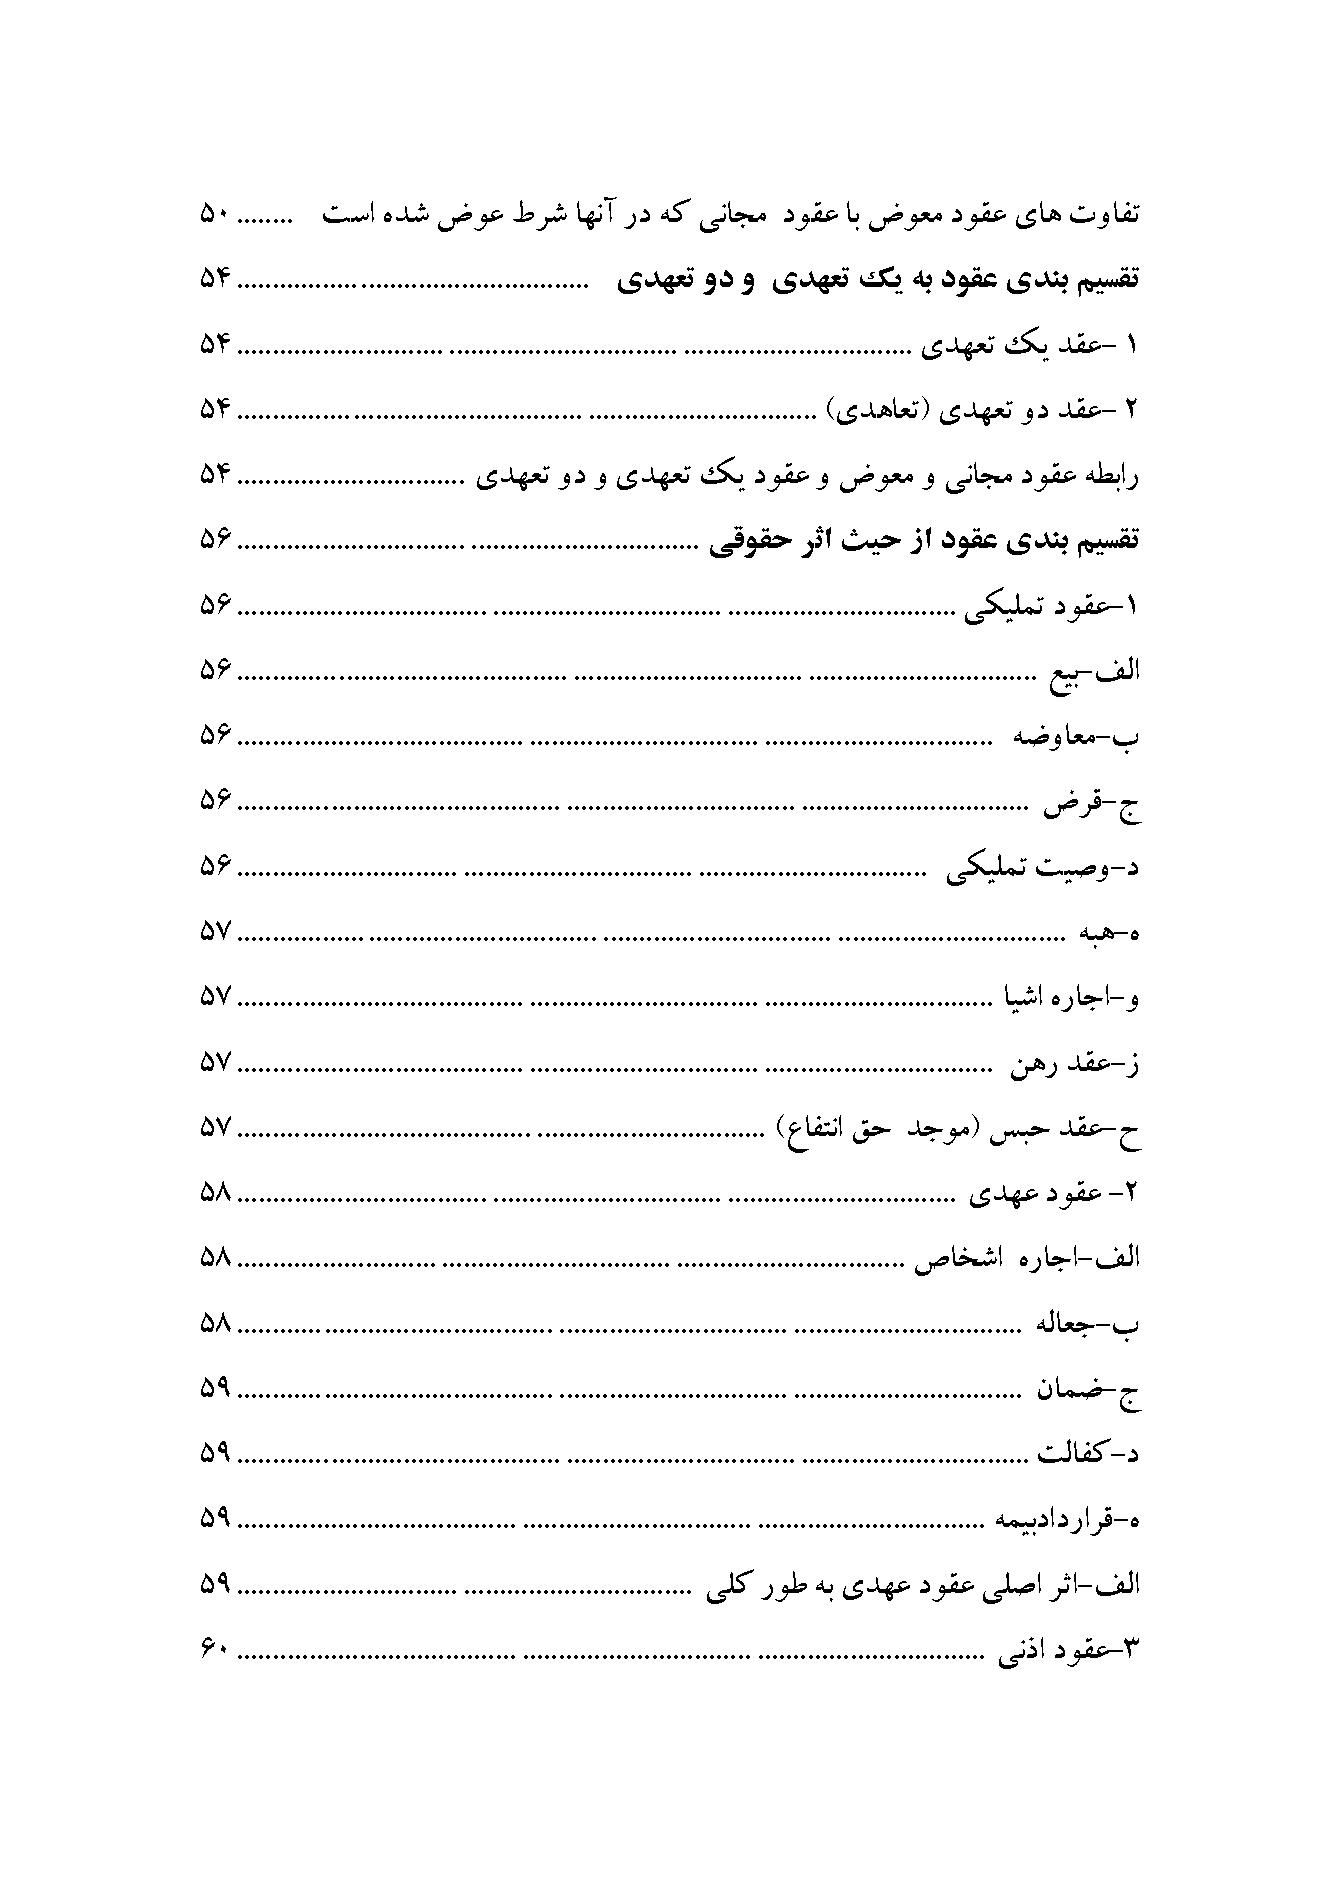 تفاوت های عقود معوض با عقود مجانی که در آنها شرط عوض شده است ........ ۵۰
تقسیم بندی عقود به یک تعهدی و دو تعهدی ................................................. ۵۴
۱ -عقد یک تعهدی ............................................................................................. ۵۴
۲ -عقد دو تعهدی (تعاهدی) ................................................................................ ۵۴
رابطه عقود مجانی و معوض و عقود یک تعهدی و دو تعهدی ................................ ۵۴
تقسیم بندی عقود از حیث اثر حقوقی ................................................................ ۵۶
۱-عقود تملیکی .................................................................................................... ۵۶
الف-بیع ............................................................................................................... ۵۶
ب-معاوضه ......................................................................................................... ۵۶
ج-قرض .............................................................................................................. ۵۶
د-وصیت تملیکی ................................................................................................ ۵۶
ه-هبه ................................................................................................................... ۵۷
و-اجاره اشیا ......................................................................................................... ۵۷
ز-عقد رهن ......................................................................................................... ۵۷
ح-عقد حبس (موجد حق انتفاع) ......................................................................... ۵۷
۲- عقود عهدی .................................................................................................... ۵۸
الف-اجاره اشخاص ............................................................................................. ۵۸
ب-جعاله ............................................................................................................. ۵۸
ج-ضمان ............................................................................................................. ۵۹
د-کفالت .............................................................................................................. ۵۹
ه-قراردادبیمه ........................................................................................................ ۵۹
الف-اثر اصلی عقود عهدی به طور کلی ............................................................... ۵۹
۳-عقود اذنی ........................................................................................................ ۶۰